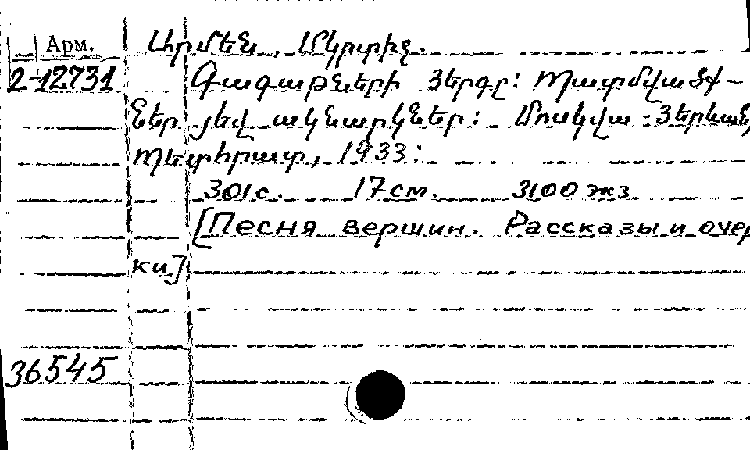 Арм. Արմեն, Մկրտիչ.
2-12731 Գագաթների յերգը: Պատմվածք-
ներ յեվ ակնարկներ: Մոսկվա-Յերևան,
Պետհրատ, 1933:
301с. 17см. 3100 экз
[Песня вершин. Рассказы и очер
ки]
36545